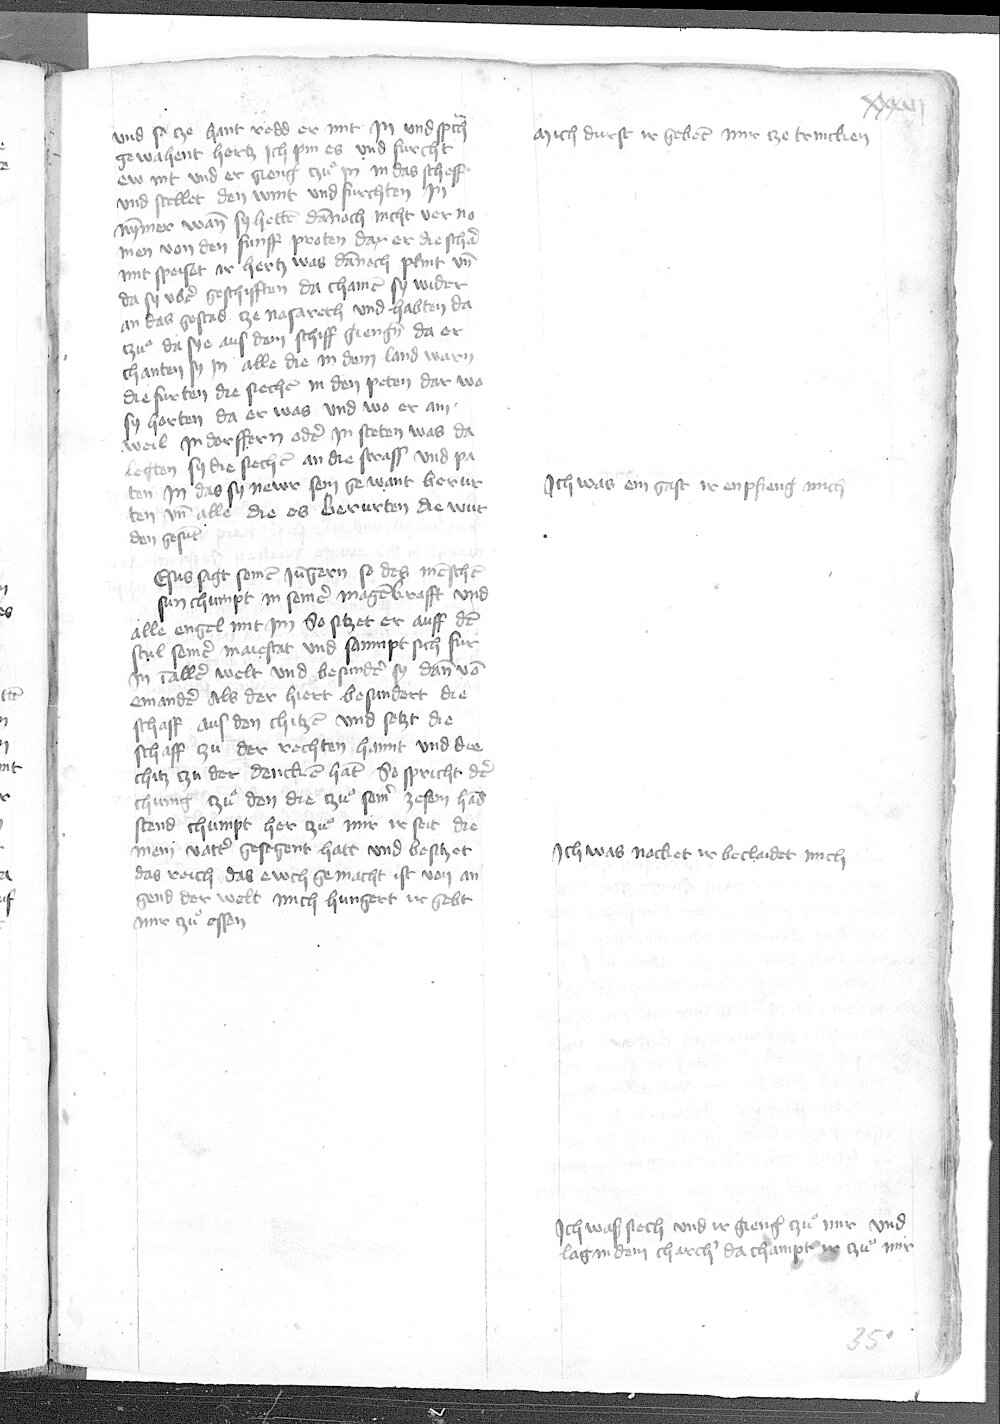 xxxvii
und so cze hant redd er mit In und sprach
gewahent hertz Ich pin es und furcht
ew nit und er gieng czuͦ in in das scheff
und stellet den wint und furchten In
nȳmer wan̄ sy hettē dan̄och nicht verno
men von den funff proten daz er die schar̄
mit speiset ir hertz was dan̄och plint vn̄
da sy vbē geschifften da chamē sy wider
an das gestad cze nasarech und habten da
czuͦ da sye aus dem schiff giengn̄ da er
chanten sy In alle die in dem land warn
die furten die siechē in den peten dar wo
sy horten da er was und wo er am
weil In dorffern odē In steten was da
legten sy die siechē an die strass und pa
ten In das sy newr sein gewant berur
ten vn̄ alle die es berurten die wur
den gesūt
Esus sagt seinē Jūgern so des mēschē
sun chumpt in seinē magēkrafft und
alle engel mit Im So sitzet er auff dē
stul seinē maiestat und sammpt sich fur
In ī allē welt und besundē sy dan̄ vō
einandē Als der hiert besundert die
schaff aus den chitzē und setzt die
schaff czu der rechten hannt und die
chitz czu der dencken hāt So spricht dē
chunig czuͦ den die czuͦ seinē zesem hād
stend chumpt her czuͦ mir ir seit die
mein vatē gesegent hatt und besitzet
das reich das ewch gemacht ist von an
gend der welt mich hungert ir gebt
mir czuͦ essen
Mich durst ir gebēt mir cze trincken
Ich was ein gast ir enpfieng mich
Ich was nacket ir beclaidet mich
Ich was siech und ir gieng czuͦ mir und
lag in dem charchē da champt ir czuͦ mir
35